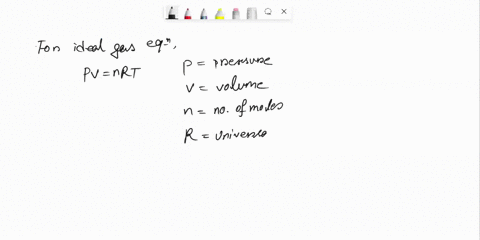 For ideal gas eqn,
PV = nRT
P = pressure
V = volume
n = no. of moles
R = universa